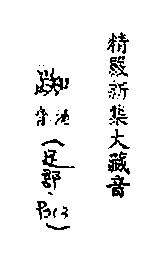 精嚴新集大藏音
音池(足部、